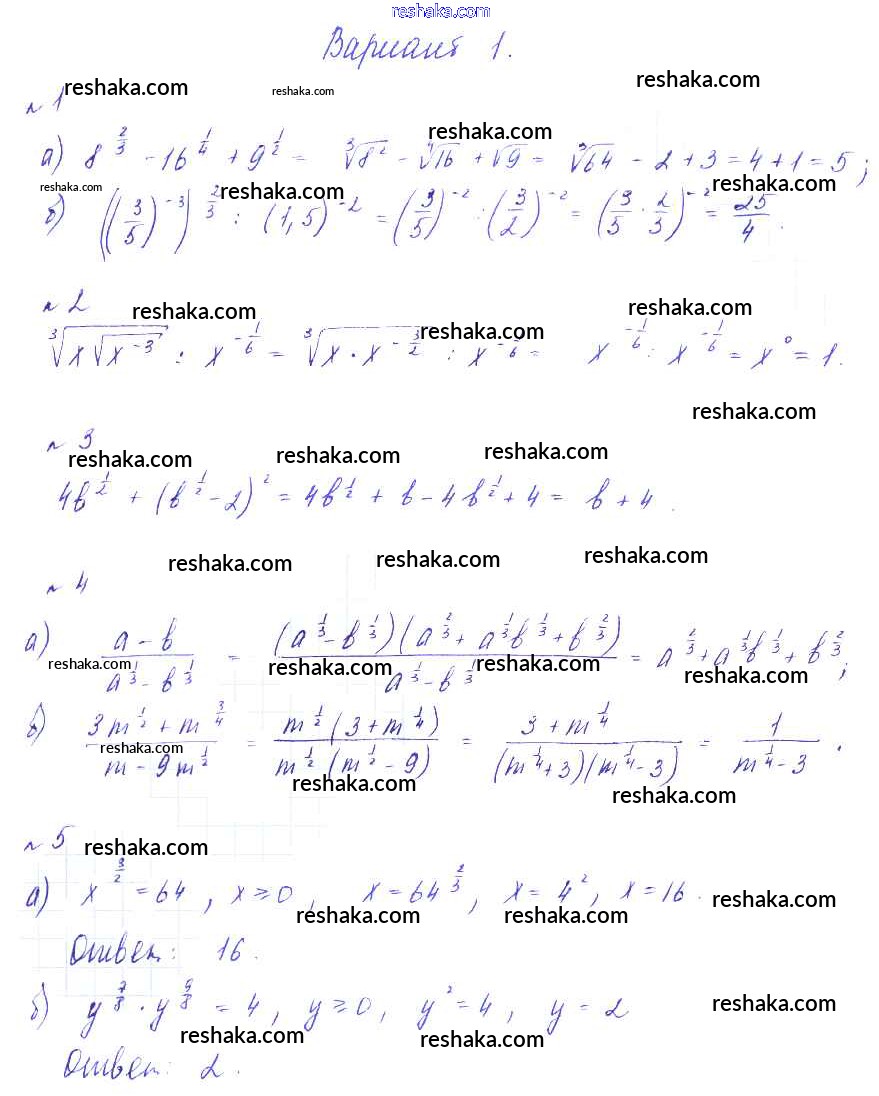 reshaka.com
Вариант 1.
reshaka.com reshaka.com reshaka.com
№ 1
reshaka.com
а) 8^(2/3) - 16^(1/4) + 9^(1/2) = ∛(8²) - ∜16 + √9 = ∛64 - 2 + 3 = 4 + 1 = 5;
reshaka.com reshaka.com reshaka.com
б) ((3/5)^(-3))^(2/3) : (1,5)^(-2) = (3/5)^(-2) : (3/2)^(-2) = (3/5 · 2/3)^(-2) = 25/4.
№ 2
reshaka.com reshaka.com reshaka.com
∛(x√(x^(-3))) : x^(-1/6) = ∛(x · x^(-3/2)) : x^(-1/6) = x^(-1/6) : x^(-1/6) = x^0 = 1.
reshaka.com
№ 3
reshaka.com reshaka.com reshaka.com
4b^(1/2) + (b^(1/2) - 2)² = 4b^(1/2) + b - 4b^(1/2) + 4 = b + 4.
reshaka.com reshaka.com reshaka.com
№ 4
а) (a - b)/(a^(1/3) - b^(1/3)) = (a^(1/3) - b^(1/3))(a^(2/3) + a^(1/3)b^(1/3) + b^(2/3))/(a^(1/3) - b^(1/3)) = a^(2/3) + a^(1/3)b^(1/3) + b^(2/3);
reshaka.com reshaka.com reshaka.com reshaka.com
б) (3m^(1/2) + m^(3/4))/(m - 9m^(1/2)) = m^(1/2)(3 + m^(1/4))/(m^(1/2)(m^(1/2) - 9)) = (3 + m^(1/4))/((m^(1/4) + 3)(m^(1/4) - 3)) = 1/(m^(1/4) - 3).
reshaka.com reshaka.com reshaka.com
№ 5
reshaka.com
а) x^(3/2) = 64, x ≥ 0, x = 64^(2/3), x = 4², x = 16.
reshaka.com reshaka.com reshaka.com
Ответ: 16.
б) y^(7/8) · y^(9/8) = 4, y ≥ 0, y² = 4, y = 2
reshaka.com reshaka.com reshaka.com
Ответ: 2.